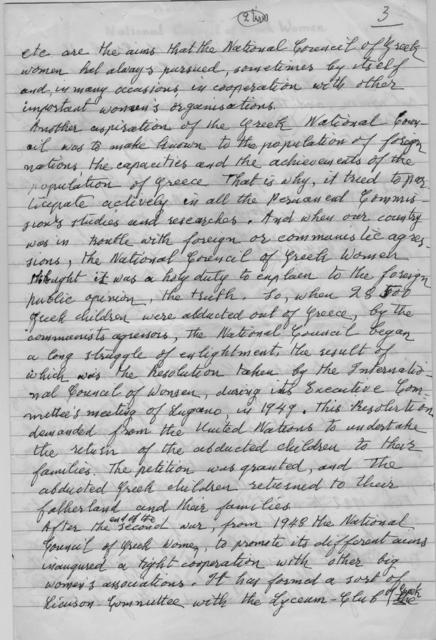 3
etc. are the aims that the National Council of Greek
women has always pursued, sometimes by itself
and, in many occassions, in cooperation with other
important women's organisations.
Another aspiration of the Greek National Coun-
cil was to make known to the population of foreign
nations, the capacities and the achievements of the
population of Greece. That is why, it tried to par
ticipate actively in all the Permanent Commis-
sion's studies and researches. And when our country
was in trouble with foreign or communistic agres-
sions, the National Council of Greek Women
thought it was a holy duty to explain to the foreign
public opinion, the truth. So, when 28
Greek children were abducted out of Greece, by the
communists agressors, the National Council began
a long struggle of enlightment, the result of
which was the Resolution taken by the Internatio-
nal Council of Women, during its Executive Com-
mittee's meeting of Lugano, in 1949. This Resolution
demanded from the United Nations to undertake
the return of the abducted children to their
families. The petition was granted, and the
abducted Greek children returned to their
fatherland and their families.
After the end of the second war, from 1948 the National
Council of Greek Women, to promote its different aims
inaugured a tight cooperation with other big
women's associations. It has formed a sort of
Liaison Committee with the Lyceum-Club of Greek